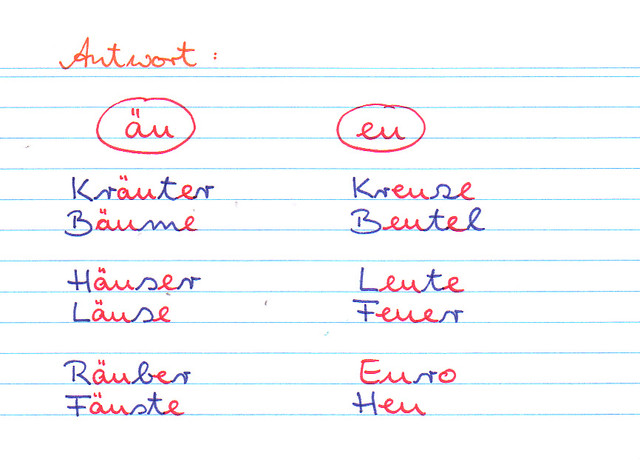 Antwort:
äu eu
Kräuter Kreuse
Bäume Beutel
Häuser Leute
Läuse Feuer
Räuber Euro
Fäuste Heu